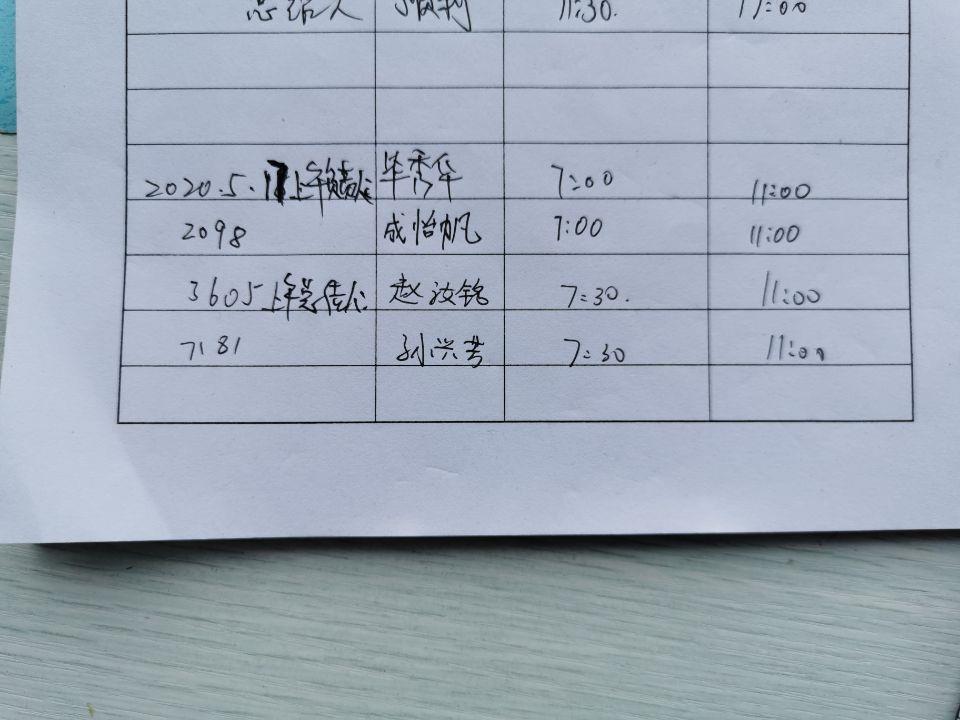 总结人 11:30. 17:00
2020.5.17上午 毕秀华 7:00 11:00
2098 成怡帆 7:00 11:00
3605上午 赵汝铭 7:30. 11:00
7181 孙兴芳 7:30 11:00